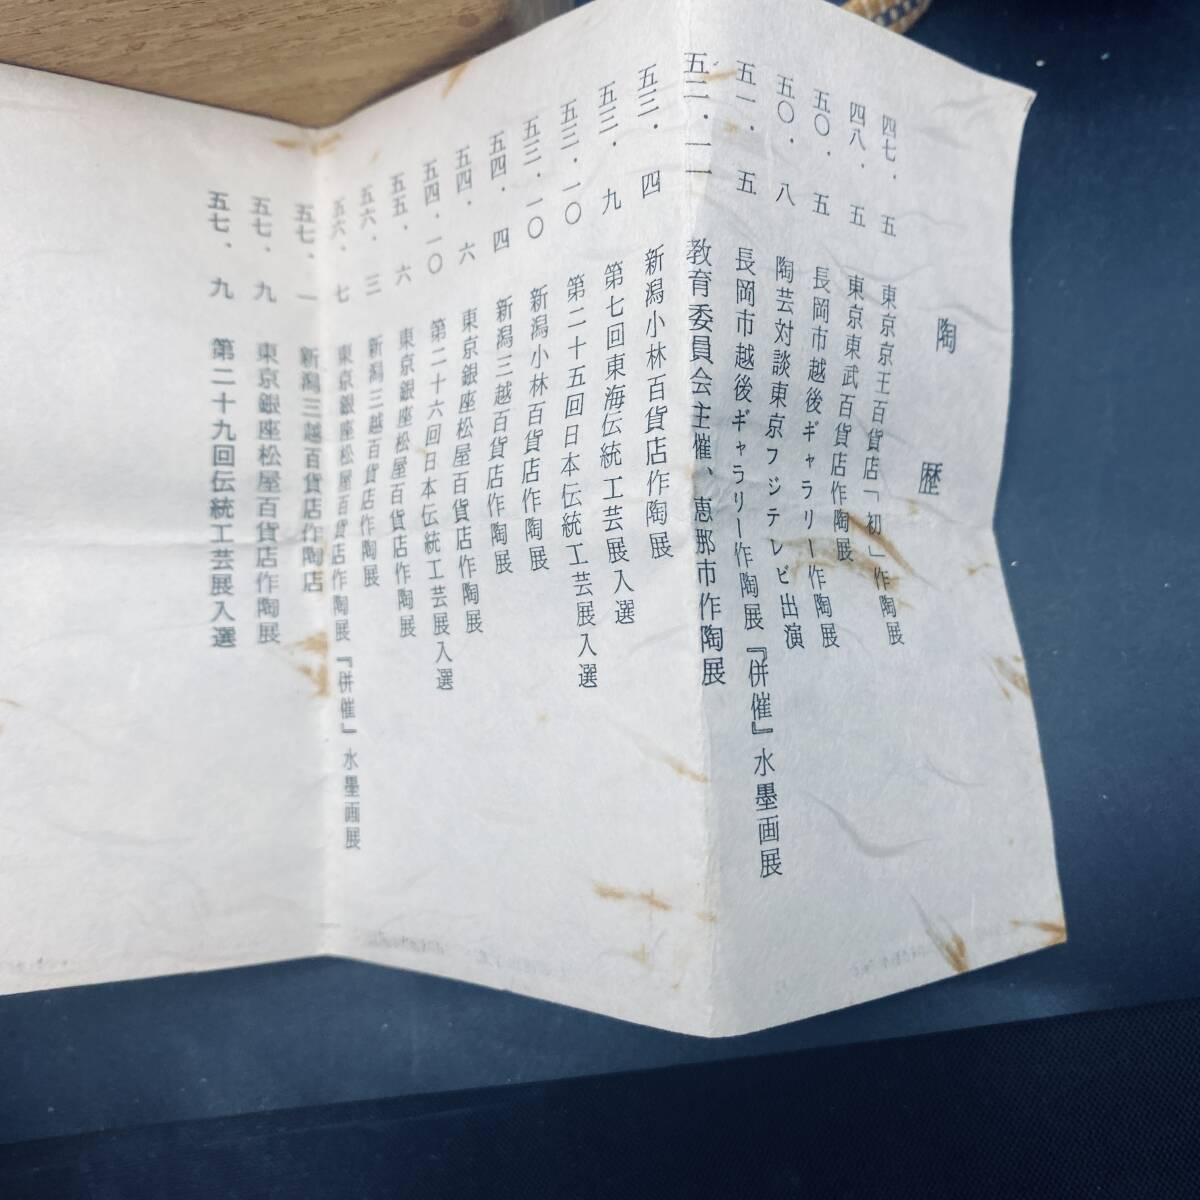 陶歴
四七、五 東京京王百貨店「初」作陶展
四八、五 東京東武百貨店作陶展
五〇、五 長岡市越後ギャラリー作陶展
五〇、八 陶芸対談東京フジテレビ出演
五一、五 長岡市越後ギャラリー作陶展『併催』水墨画展
五二、一一 教育委員会主催、恵那市作陶展
五三、四 新潟小林百貨店作陶展
五三、九 第七回東海伝統工芸展入選
五三、一〇 第二十五回日本伝統工芸展入選
五三、一〇 新潟小林百貨店作陶展
五四、四 新潟三越百貨店作陶展
五四、六 東京銀座松屋百貨店作陶展
五四、一〇 第二十六回日本伝統工芸展入選
五五、六 東京銀座松屋百貨店作陶展
五六、三 新潟三越百貨店作陶展
五六、七 東京銀座松屋百貨店作陶展『併催』水墨画展
五七、一 新潟三越百貨店作陶店
五七、九 東京銀座松屋百貨店作陶展
五七、九 第二十九回伝統工芸展入選